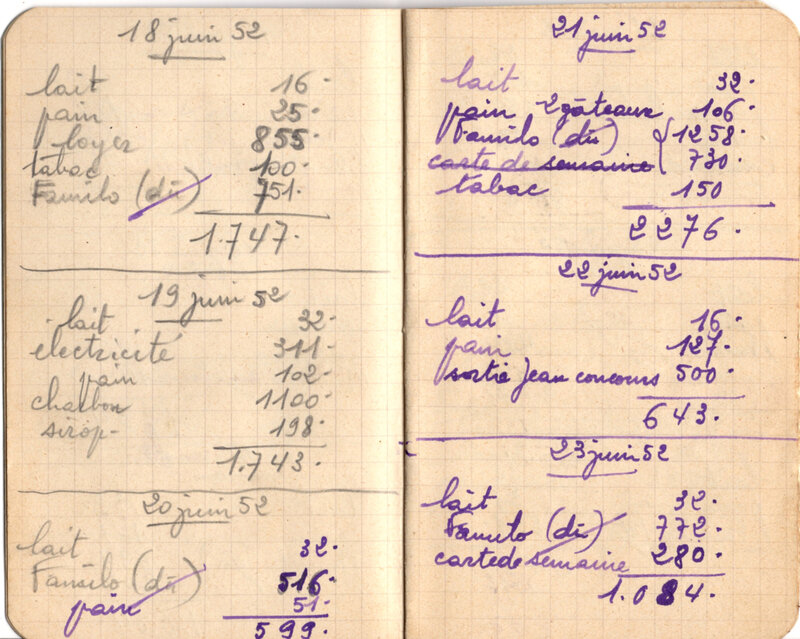 18 juin 52
lait 16.
pain 25.
loyer 855.
tabac 100.
Familo (dû) 751.
1.747.
19 juin 52
lait 32.
electricité 311.
pain 102.
charbon 1100.
sirop. 198.
1.743.
20 juin 52
lait 32.
Familo (dû) 516.
pain 51.
599.
21 juin 52
lait 32.
pain 2 gâteaux 106.
Familo (dû) 1258.
carte de semaine 730.
tabac 150
2276.
22 juin 52
lait 16.
pain 127.
sortie Jean concours 500.
643.
23 juin 52
lait 32.
Familo (dû) 772.
carte de semaine 280.
1.084.